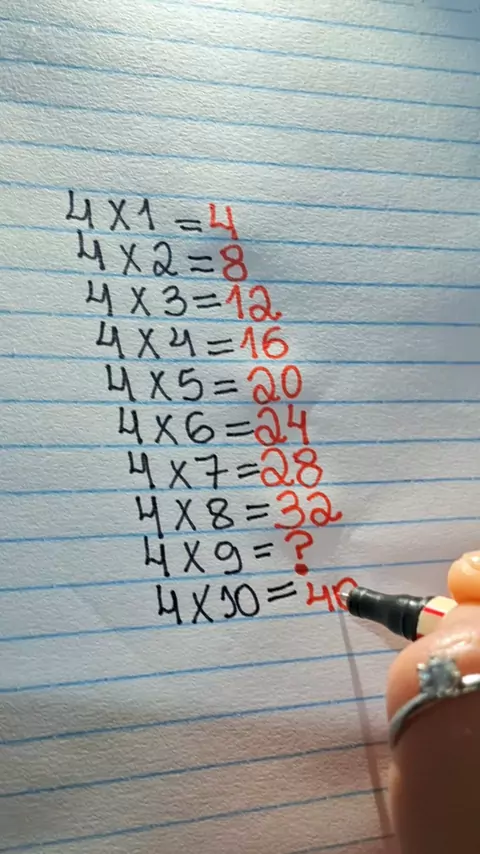 4 x 1 = 4
4 x 2 = 8
4 x 3 = 12
4 x 4 = 16
4 x 5 = 20
4 x 6 = 24
4 x 7 = 28
4 x 8 = 32
4 x 9 = ?
4 x 10 = 40